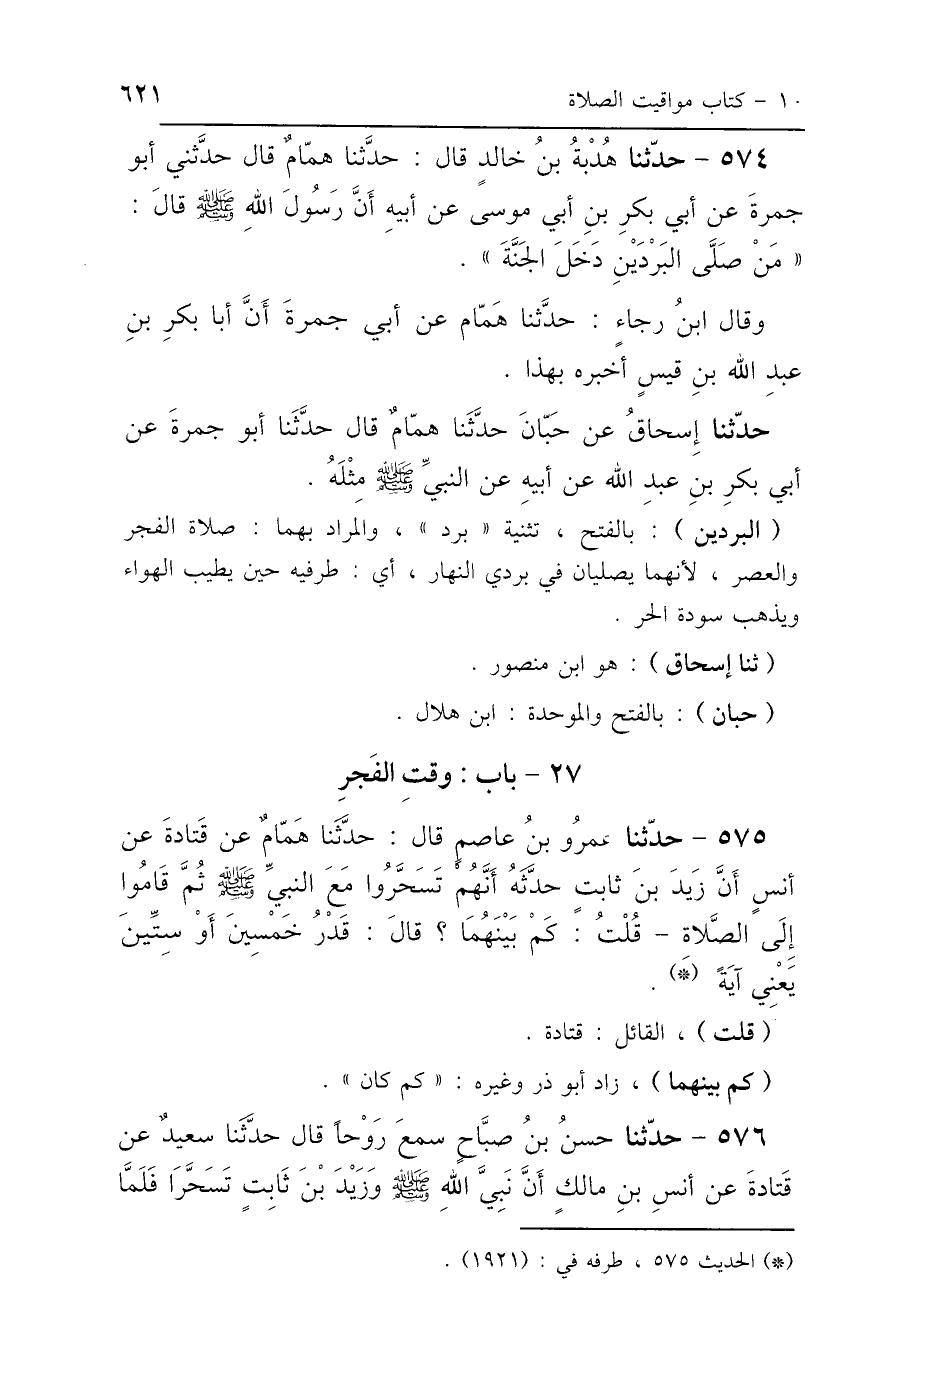 ١٠ - كتاب مواقيت الصلاة ٦٢١
٥٧٤ - حدّثنا هُدْبةُ بنُ خالدٍ قال : حدَّثنا همّامٌ قال حدَّثني أبو
جمرةَ عن أبي بكرِ بنِ أبي موسى عن أبيهِ أنَّ رَسُولَ اللهِ ﷺ قالَ :
« مَنْ صَلَّى البَرْدَيْنِ دَخَلَ الجَنَّةَ » .
وقال ابنُ رجاءٍ : حدَّثنا هَمّام عن أبي جمرةَ أَنَّ أبا بكرِ بنِ
عبدِ الله بنِ قيسٍ أخبره بهذا .
حدّثنا إسحاقُ عن حَبّانَ حدَّثَنا همّامٌ قال حدَّثَنا أبو جمرةَ عن
أبي بكرِ بنِ عبدِ الله عن أبيهِ عن النبيِّ ﷺ مِثْلَهُ .
( البردين ) : بالفتح ، تثنية « برد » ، والمراد بهما : صلاة الفجر
والعصر ، لأنهما يصليان في بردي النهار ، أي : طرفيه حين يطيب الهواء
ويذهب سودة الحر .
( ثنا إسحاق ) : هو ابن منصور .
( حبان ) : بالفتح والموحدة : ابن هلال .
٢٧ - باب : وقتِ الفَجرِ
٥٧٥ - حدّثنا عمرُو بنُ عاصمٍ قال : حدَّثَنا هَمّامٌ عن قَتادةَ عن
أنسٍ أَنَّ زَيدَ بنَ ثابتٍ حدَّثَهُ أَنَّهُمْ تَسَحَّرُوا مَعَ النبيِّ ﷺ ثُمَّ قَامُوا
إِلَى الصَّلاةِ - قُلْتُ : كَمْ بَيْنَهُمَا ؟ قالَ : قَدْرُ خَمْسِينَ أَوْ سِتِّينَ
يَعْنِي آيَةً (*) .
( قلت ) ، القائل : قتادة .
( كم بينهما ) ، زاد أبو ذر وغيره : « كم كان » .
٥٧٦ - حدّثنا حسنُ بنُ صبَّاحٍ سمعَ رَوْحاً قال حدَّثَنا سعيدٌ عن
قَتادةَ عن أنسِ بنِ مالكٍ أَنَّ نَبِيَّ اللهِ ﷺ وَزَيْدَ بْنَ ثَابِتٍ تَسَحَّرَا فَلَمَّا
(*) الحديث ٥٧٥ ، طرفه في : (١٩٢١) .